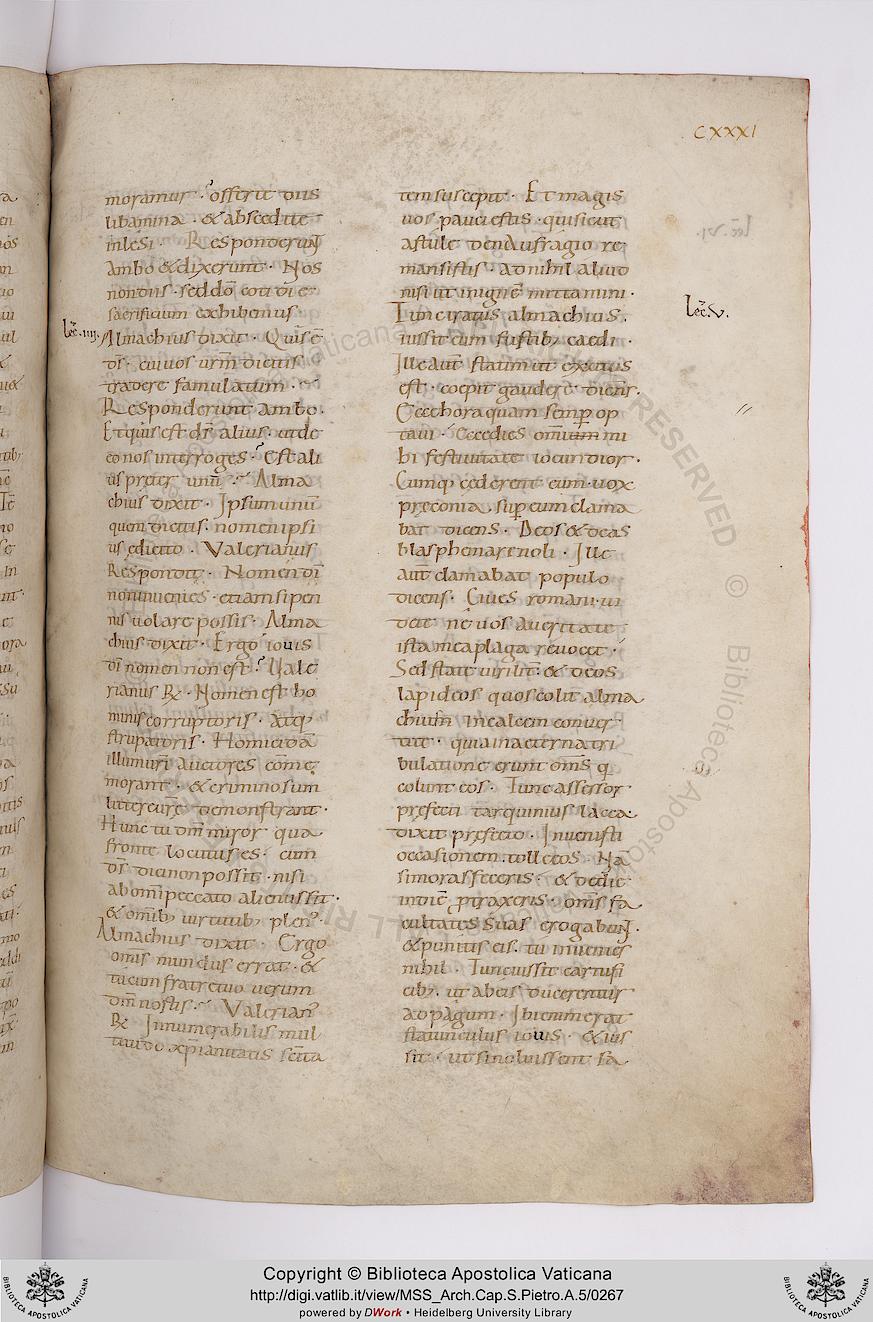 CXXXI
moramur · offerte diis
libamina · & abscedite
inlesi · Responderunt
Ambo & dixerunt · Nos
non diis · sed dō cotidie
sacrificium exhibemus ·
lec̄ · iiij · Almachius dixit · Quis ē
d̄s · cui uos ur̄m dicitis
tradere famulatum ·
Responderunt ambo ·
Et quis est d̄s alius · ut de
eo nos interroges · Est ali
us preter unū · Alma
chius dixit · Ipsum unū
quem dicitis · nomen ipsi
us edicito · Valerianus
Respondit · Nomen dī
non inuenies · etiam si pen
nis uolare possis · Alma
chius dixit · Ergo iouis
dī nomen non est · Vale
rianus R̄ · Nomen est ho
minis corruptoris · atq;
strupatoris · Homicidā
illum ur̄i auctores comme
morant · & criminosum
litterę ur̄ę demonstrant ·
Hunc tu dm̄ miror qua
fronte locutus es · cum
d̄s dici non possit · nisi
ab omī peccato alienus sit ·
& omib; uirtutib; plen᾽ ·
Almachius dixit · Ergo
omis mundus errat · &
tu cum fratre tuo uerum
dm̄ nostis · Valerian᾽
R̄ · Innumerabilis mul
titudo xp̄ianitatis sc̄ta
tem suscepit · Et magis
uos pauci estis · qui sicut
astule de naufragio re
mansistis · ad nihil aliud
nisi ut in ignē mittamini ·
lec̄ · V · Tunc iratus almachius ·
iussit eum fustib; caedi ·
Ille aut̄ statim ut exutus
est · coepit gaudere dicens ·
Ecce hora quam semp̲ op
taui · Ecce dies omium mi
hi festiuitate iocundior ·
Cumq; cederent eum · uox
pręconia · sup̲ eum clama
bat dicens · Deos & deas
blasphemare noli · Ille
aut̄ clamabat populo
dicens · Ciues romani · ui
dete ne uos auertat
ista mea plaga reuocet ·
Sed state uirilit̄ · & deos
lapideos quos colit alma
chium in calcem conuer
tite · quia in aeterna tri
bulatione erunt om̄s q
colunt eos · Tunc assessor
pręfecti tarquinius lacca
dixit pręfecto · Inuenisti
occasionem · tolle eos · Nā
si moras feceris · & de die
in diē p̲traxeris · om̄s fa
cultates suas erogabunt ·
& punitis eis · tu inuenies
nihil · Tunc iussit carnifi
cib; · ut ab eis ducerentur
ad pagum · Ibi enim erat
statunculus iouis · & ius
sit · ut si noluissent sa
Copyright © Biblioteca Apostolica Vaticana
http://digi.vatlib.it/view/MSS_Arch.Cap.S.Pietro.A.5/0267
powered by DWork • Heidelberg University Library